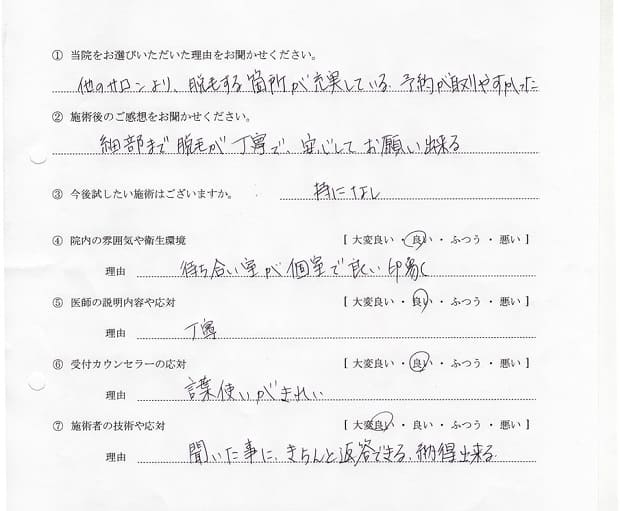 ① 当院をお選びいただいた理由をお聞かせください。
他のサロンより、脱毛する箇所が充実している. 予約が取りやすかった
② 施術後のご感想をお聞かせください。
細部まで脱毛が丁寧で、安心してお願い出来る
③ 今後試したい施術はございますか。 特になし
④ 院内の雰囲気や衛生環境 [ 大変良い ・ 良い ・ ふつう ・ 悪い ]
理由 待ち合い室が個室で良い印象
⑤ 医師の説明内容や応対 [ 大変良い ・ 良い ・ ふつう ・ 悪い ]
理由 丁寧
⑥ 受付カウンセラーの応対 [ 大変良い ・ 良い ・ ふつう ・ 悪い ]
理由 言葉使いがきれい
⑦ 施術者の技術や応対 [ 大変良い ・ 良い ・ ふつう ・ 悪い ]
理由 聞いた事に、きちんと返答できる、納得出来る.